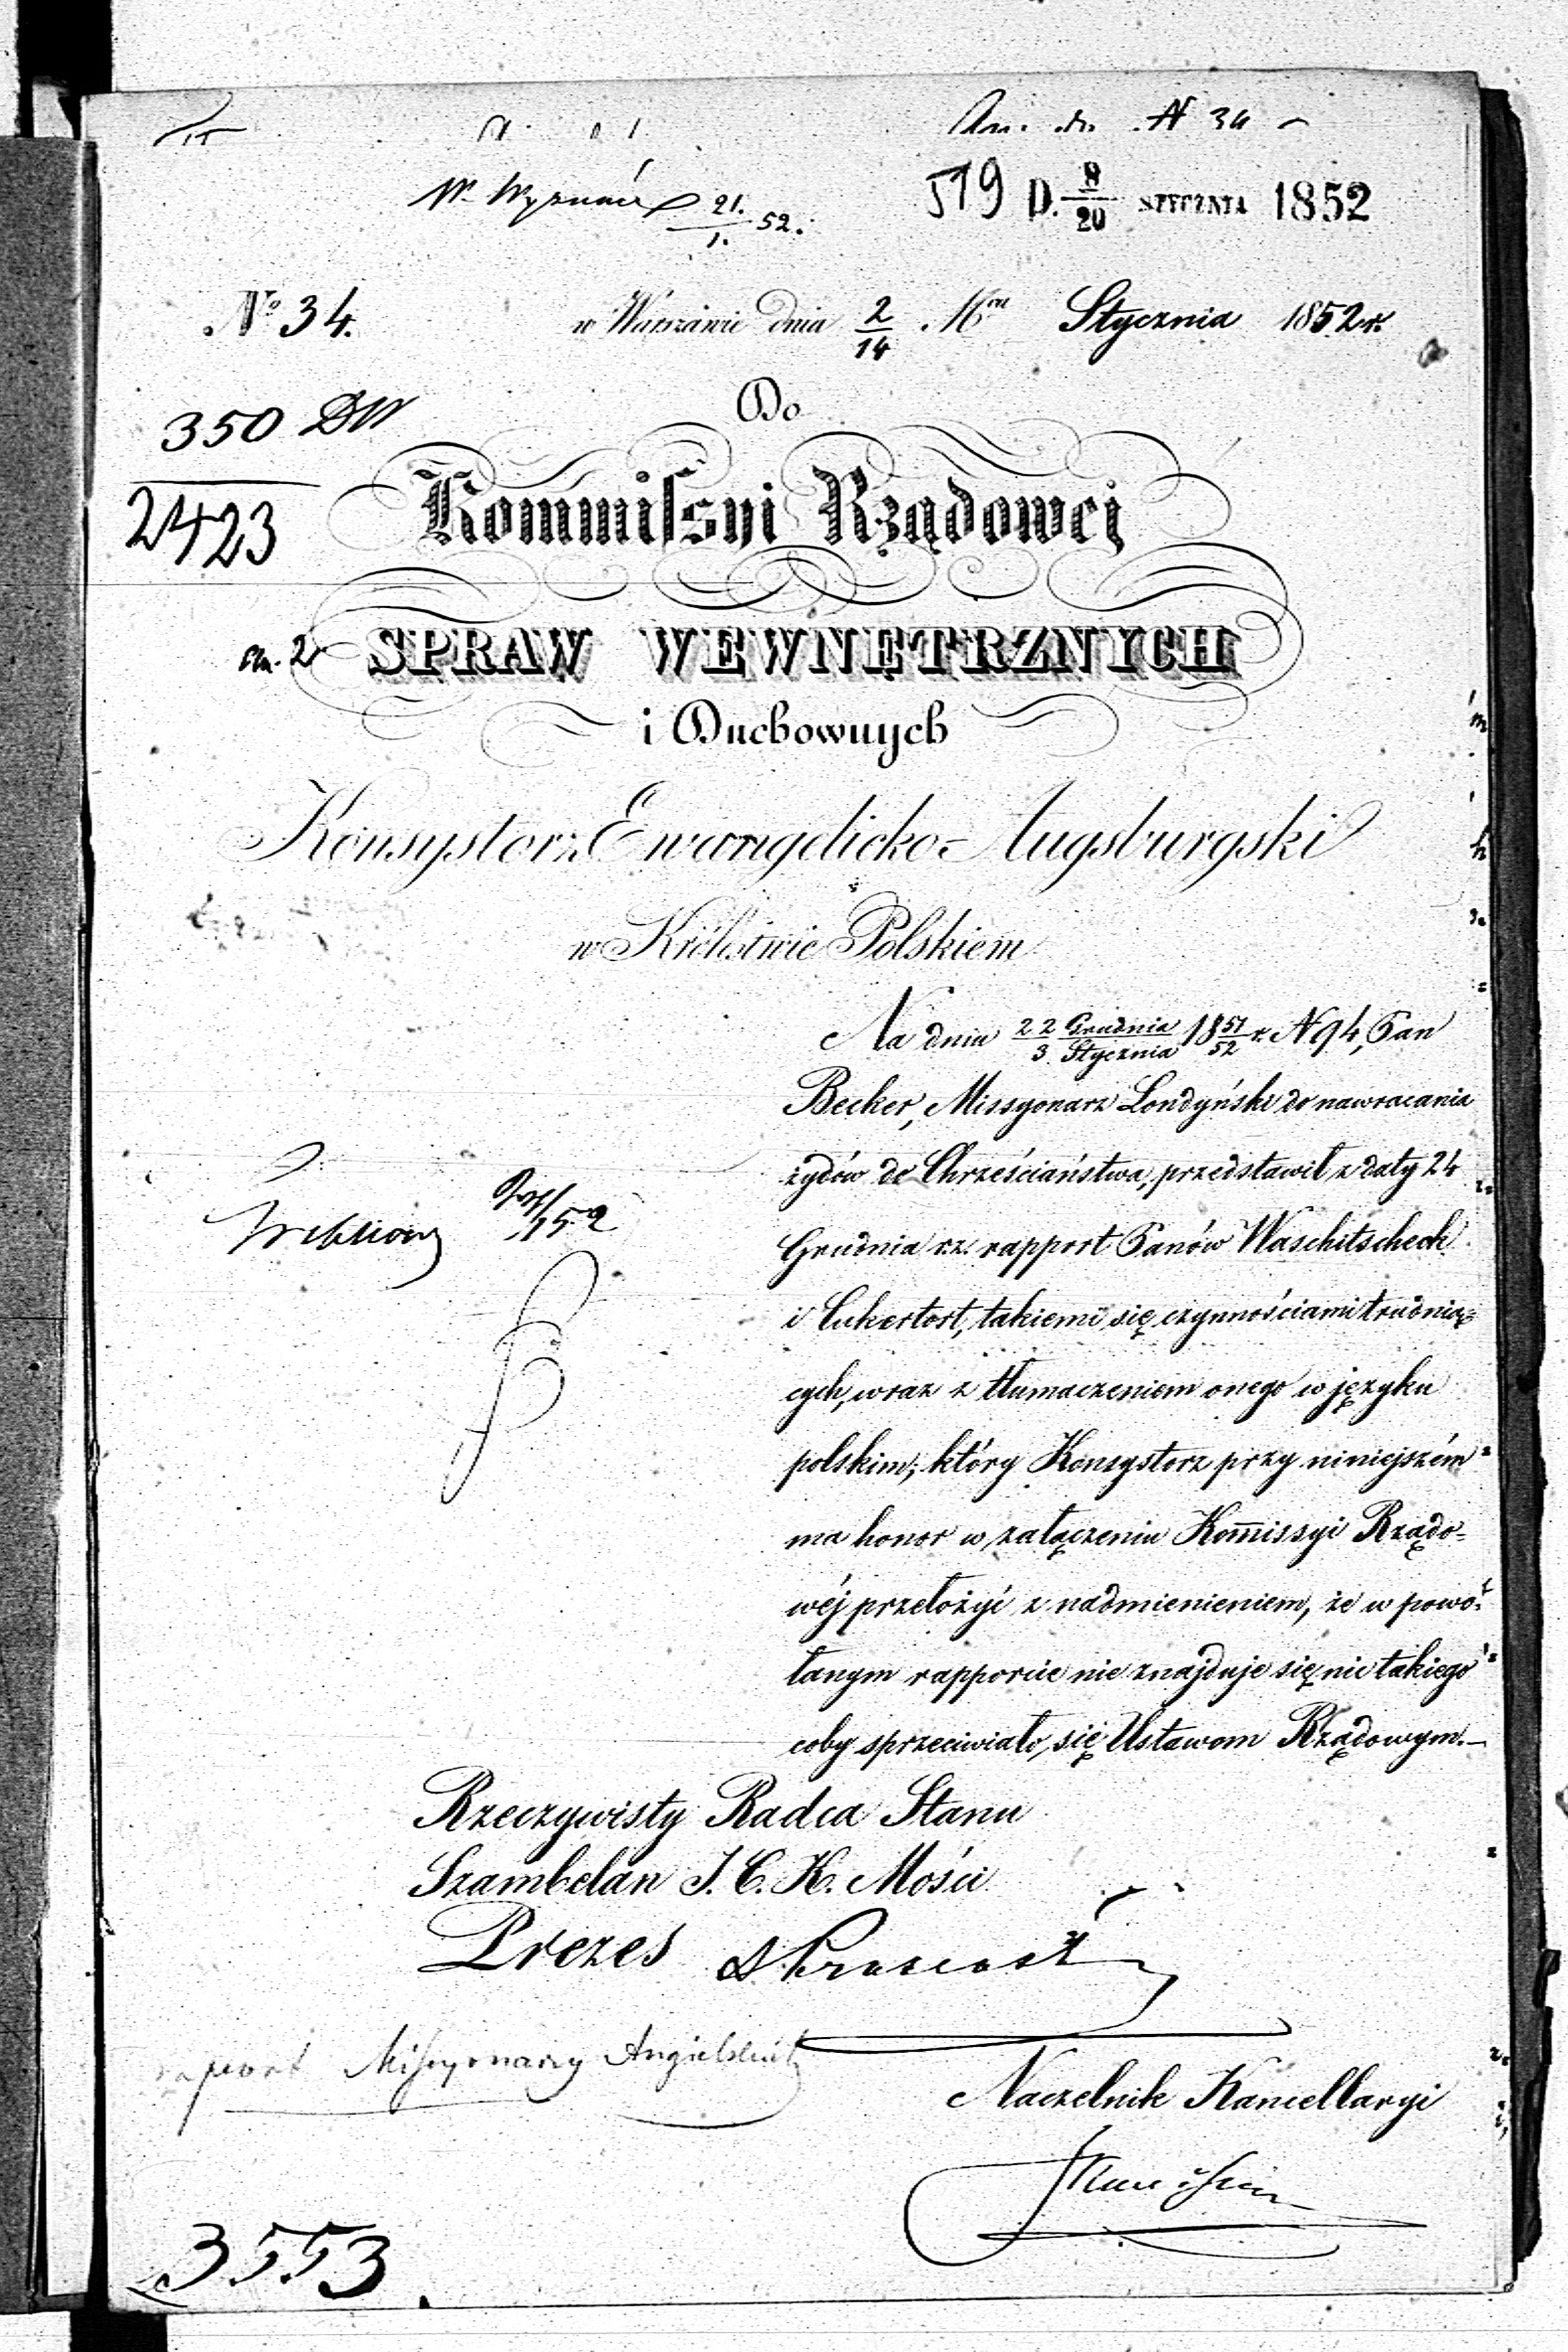 N 34
W. Wyznań 21./1. 52.
519 D. 8/20 STYCZNIA 1852
№ 34.
w Warszawie dnia 2/14 Mca Stycznia 1852 r.
350 DW
2423
Do
Kommissyi Rządowej
SPRAW WEWNĘTRZNYCH
i Duchownych
Konsystorz Ewangelicko-Augsburgski
w Królestwie Polskiem
Na dniu 22 Grudnia/3 Stycznia 1851/52 r. N 94, Pan
Becker, Missyonarz Londyński do nawracania
żydów do Chrześciaństwa, przedstawił z daty 24
Grudnia r.z. rapport Panów Waschitscheck
i Cukertort, takiemi się czynnościami trudnią=
cych, wraz z tłumaczeniem onego w języku
polskim; który Konsystorz przy niniejszém
ma honor w załączeniu Kom̄issyi Rządo-
wéj przełożyć z nadmienieniem, że w powo-
łanym rapporcie nie znajduje się nic takiego
coby sprzeciwiało się Ustawom Rządowym.—
Rzeczywisty Radca Stanu
Szambelan J. C. K. Mości
Prezes
raport Missyonarzy Angielskich
Naczelnik Kancellaryi
3553.